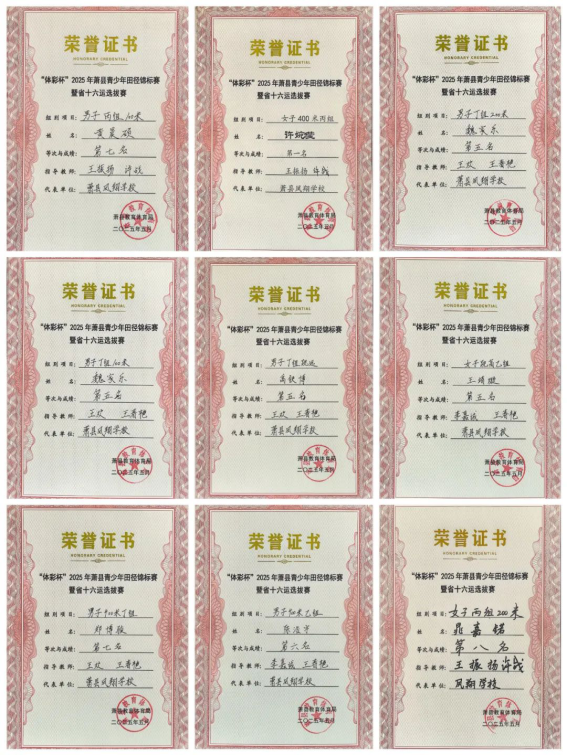 荣誉证书
HONORARY CREDENTIAL
“体彩杯”2025年萧县青少年田径锦标赛
暨省十六运选拔赛
组别项目：男子丙组100米
姓名：黄昊硕
等次与成绩：第七名
指导教师：王振扬
代表单位：萧县凤翔学校
萧县教育体育局
二〇二五年五月
荣誉证书
HONORARY CREDENTIAL
“体彩杯”2025年萧县青少年田径锦标赛
暨省十六运选拔赛
组别项目：女子400米丙组
姓名：许婉莹
等次与成绩：第一名
指导教师：王振扬
代表单位：萧县凤翔学校
萧县教育体育局
二〇二五年五月
荣誉证书
HONORARY CREDENTIAL
“体彩杯”2025年萧县青少年田径锦标赛
暨省十六运选拔赛
组别项目：男子丁组200米
姓名：魏家乐
等次与成绩：第五名
指导教师：王欢
代表单位：萧县凤翔学校
萧县教育体育局
二〇二五年五月
荣誉证书
HONORARY CREDENTIAL
“体彩杯”2025年萧县青少年田径锦标赛
暨省十六运选拔赛
组别项目：男子丁组100米
姓名：魏家乐
等次与成绩：第五名
指导教师：王欢
代表单位：萧县凤翔学校
萧县教育体育局
二〇二五年五月
荣誉证书
HONORARY CREDENTIAL
“体彩杯”2025年萧县青少年田径锦标赛
暨省十六运选拔赛
组别项目：男子丁组跳远
姓名：
等次与成绩：第五名
指导教师：王欢
代表单位：萧县凤翔学校
萧县教育体育局
二〇二五年五月
荣誉证书
HONORARY CREDENTIAL
“体彩杯”2025年萧县青少年田径锦标赛
暨省十六运选拔赛
组别项目：女子跳高乙组
姓名：王靖璇
等次与成绩：第五名
指导教师：李嘉诚
代表单位：萧县凤翔学校
萧县教育体育局
二〇二五年五月
荣誉证书
HONORARY CREDENTIAL
“体彩杯”2025年萧县青少年田径锦标赛
暨省十六运选拔赛
组别项目：男子400米丁组
姓名：郑博毅
等次与成绩：第七名
指导教师：王欢
代表单位：萧县凤翔学校
萧县教育体育局
二〇二五年五月
荣誉证书
HONORARY CREDENTIAL
“体彩杯”2025年萧县青少年田径锦标赛
暨省十六运选拔赛
组别项目：男子乙组
姓名：
等次与成绩：第六名
指导教师：李嘉诚
代表单位：萧县凤翔学校
萧县教育体育局
二〇二五年五月
荣誉证书
HONORARY CREDENTIAL
“体彩杯”2025年萧县青少年田径锦标赛
暨省十六运选拔赛
组别项目：女子丙组200米
姓名：晁嘉锘
等次与成绩：第八名
指导教师：王振扬
代表单位：凤翔学校
萧县教育体育局
二〇二五年五月